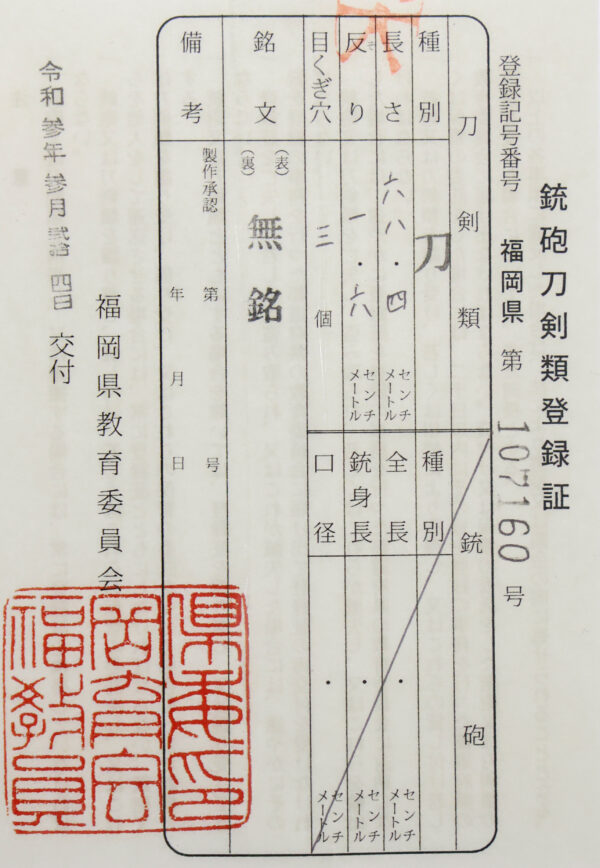 銃砲刀剣類登録証
登録記号番号 福岡県 第 107160 号
刀剣類
種別 刀
長さ 六八・四 センチメートル
反り 一・六 センチメートル
目くぎ穴 三 個
銘文 (表) (裏) 無銘
備考 製作承認 第 号 年 月 日
銃砲
種別
全長 ・ センチメートル
銃身長 ・ センチメートル
口径 ・ センチメートル
福岡県教育委員会
令和参年参月弐拾四日 交付